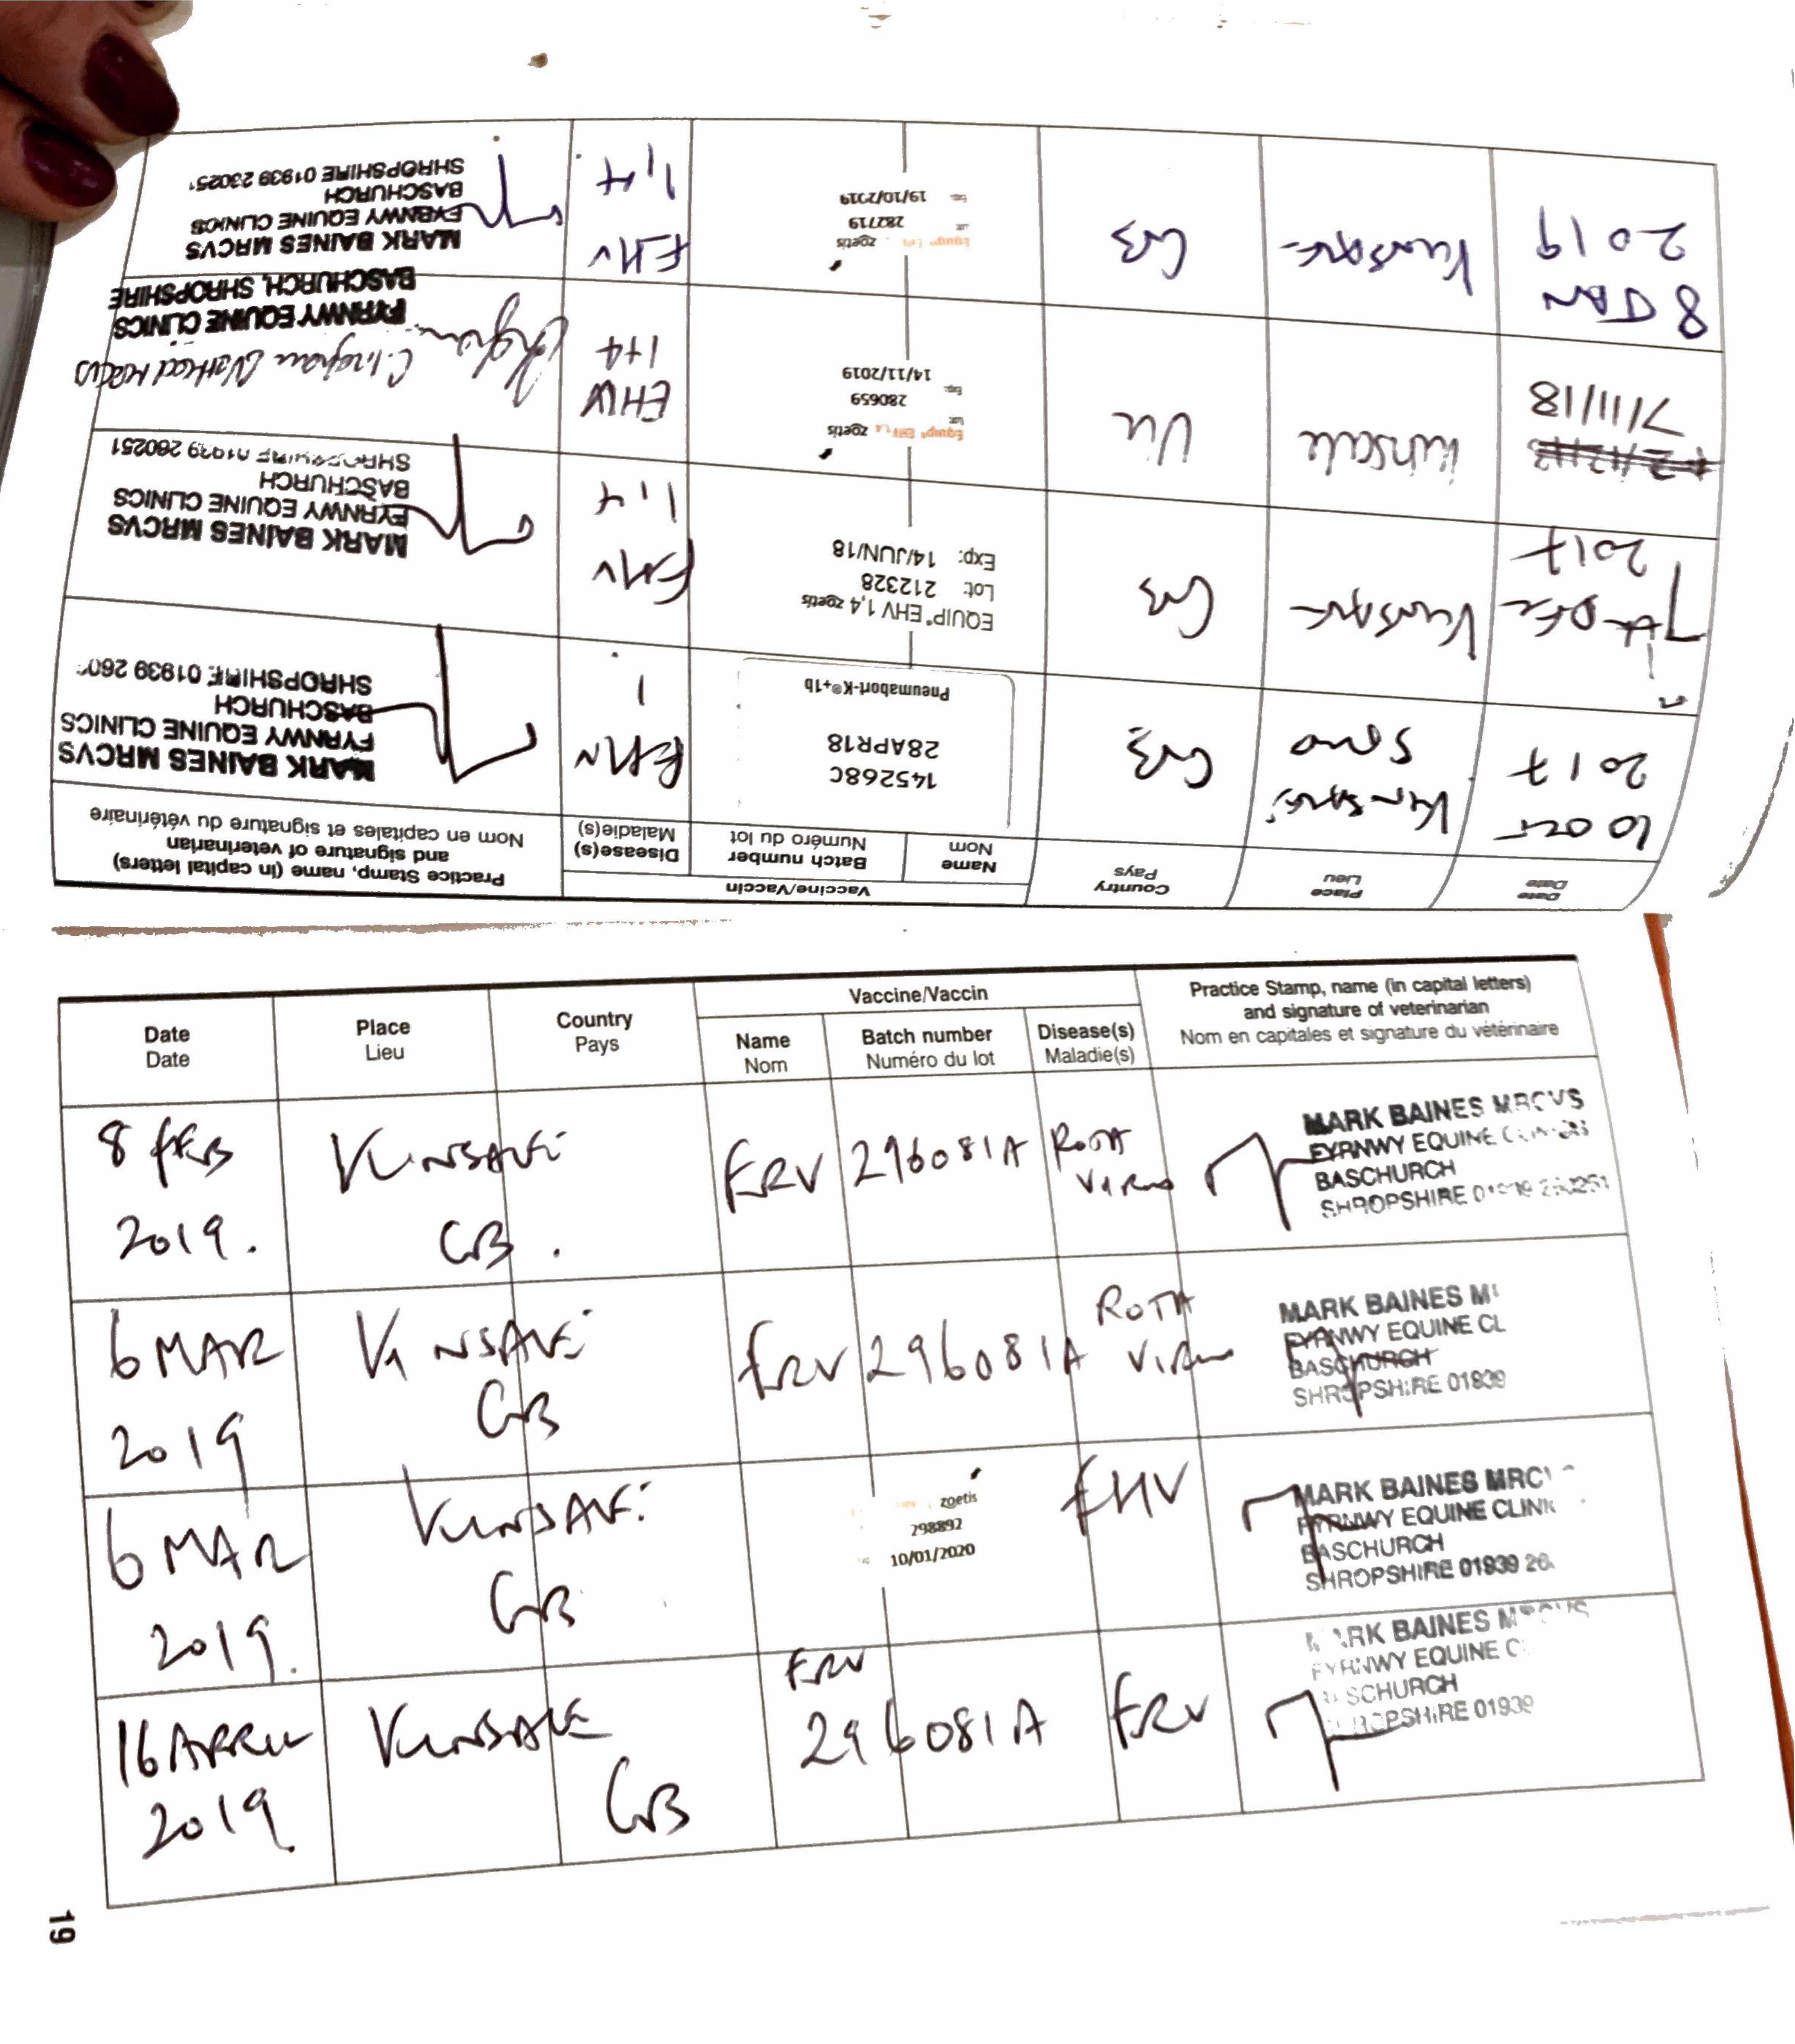 Date
Date
Place
Lieu
Country
Pays
Vaccine/Vaccin
Name
Nom
Batch number
Numéro du lot
Disease(s)
Maladie(s)
Practice Stamp, name (in capital letters)
and signature of veterinarian
Nom en capitales et signature du vétérinaire
10 OCT
2017
GB
145268C
28APR18
Pneumabort-K®+1b
EHV
1
MARK BAINES MRCVS
FYRNWY EQUINE CLINICS
BASCHURCH
SHROPSHIRE 01939 260
7th DEC
2017
GB
EQUIP® EHV 1,4 zoetis
Lot: 212328
Exp: 14/JUN/18
EHV
1,4
MARK BAINES MRCVS
FYRNWY EQUINE CLINICS
BASCHURCH
SHROPSHIRE 01939 260251
7/11/18
Kinsale
UK
Equip® EHV 1,4 zoetis
Lot: 280659
Exp: 14/11/2019
EHV
1+4
FYRNWY EQUINE CLINICS
BASCHURCH, SHROPSHIRE
8 JAN
2019
GB
Equip® zoetis
Lot: 282719
Exp: 19/10/2019
EHV
1,4
MARK BAINES MRCVS
FYRNWY EQUINE CLINICS
BASCHURCH
SHROPSHIRE 01939
Date
Date
Place
Lieu
Country
Pays
Vaccine/Vaccin
Name
Nom
Batch number
Numéro du lot
Disease(s)
Maladie(s)
Practice Stamp, name (in capital letters)
and signature of veterinarian
Nom en capitales et signature du vétérinaire
8 FEB
2019.
KINSALE
GB.
ERV
296081A
ROTA
VIRUS
MARK BAINES MRCVS
FYRNWY EQUINE
BASCHURCH
SHROPSHIRE
6 MAR
2019
KINSALE
GB
ERV
296081A
ROTA
VIRUS
MARK BAINES
FYRNWY EQUINE CL
BASCHURCH
SHROPSHIRE 01939
6 MAR
2019.
KINSALE
GB
zoetis
298892
10/01/2020
EHV
MARK BAINES MRCV
FYRNWY EQUINE CLIN
BASCHURCH
SHROPSHIRE 01939 26
16 APRIL
2019.
KINSALE
GB
ERV
296081A
ERV
MARK BAINES MRCVS
FYRNWY EQUINE C
BASCHURCH
SHROPSHIRE 01939
19